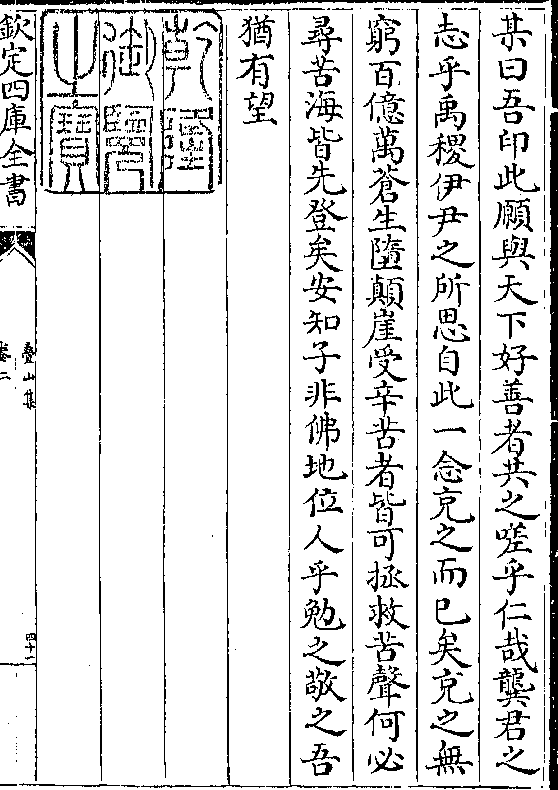 某曰吾印此願與天下好善者共之嗟乎仁哉龔君之
志乎禹稷伊尹之所思自此一念充之而已矣充之無
窮百億萬蒼生墮顛崖受辛苦者皆可拯救苦聲何必
尋苦海皆先登矣安知子非佛地位人乎勉之敬之吾
猶有望
乾隆
御覽
之寶
欽定四庫全書
疊山集
卷二
四十二